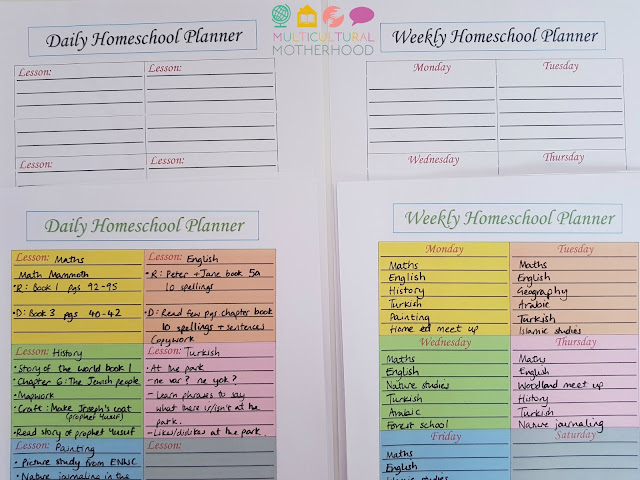 MULTICULTURAL
MOTHERHOOD
Daily Homeschool Planner
Lesson:
Lesson:
Lesson:
Lesson:
Weekly Homeschool Planner
Monday
Tuesday
Wednesday
Thursday
Daily Homeschool Planner
Lesson: Maths
Math Mammoth
• R: Book 1 pgs 92-95
• D: Book 3 pgs 40-42
Lesson: English
• R: Peter + Jane book 5a
10 spellings
• D: Read few pgs chapter book
10 spellings + sentences
Copywork
Lesson: History
• Story of the world book 1
• Chapter 6: The Jewish people
• Mapwork
• Craft: Make Joseph's coat
(prophet Yusuf)
• Read story of prophet Yusuf
Lesson: Turkish
• At the park
- ne var? ne yok?
- Learn phrases to say
what there is/isn't at the
park.
- Likes/dislikes at the park.
Lesson: Painting
• Picture study from ENWC
• Nature journaling in the
Lesson:
Weekly Homeschool Planner
Monday
Maths
English
History
Turkish
Painting
Home ed meet up
Tuesday
Maths
English
Geography
Arabic
Turkish
Islamic studies
Wednesday
Maths
English
Nature studies
Turkish
Arabic
Forest school
Thursday
Maths
English
Woodland meet up
History
Turkish
Nature journaling
Friday
Maths
English
Islamic studies
Saturday